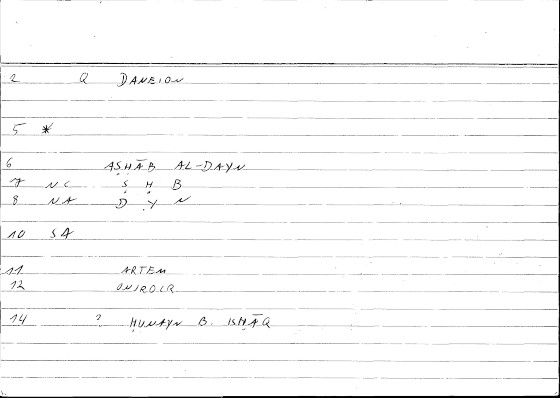 2 Q DANEION
5 *
6 AṢḤĀB AL-DAYN
7 NC Ṣ Ḥ B
8 NA D Y N
10 SA
11 ARTEM
12 ONIROCR
14 ? ḤUNAYN B. ISḤĀQ